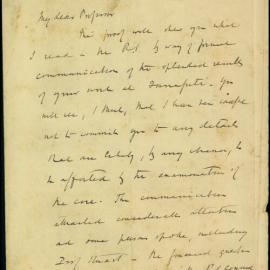 My dear Professor
The proof will shew you what
I read in the R.S. by way of formal
communication of the splendid results
of your work at Funafuti. You
will see, I think, that I have been careful
not to commit you to any details
that are likely, by any chance, to
be affected by the examination of
the core. The communication
attracted considerable attention
and some persons spoke, including
Prof Stewart